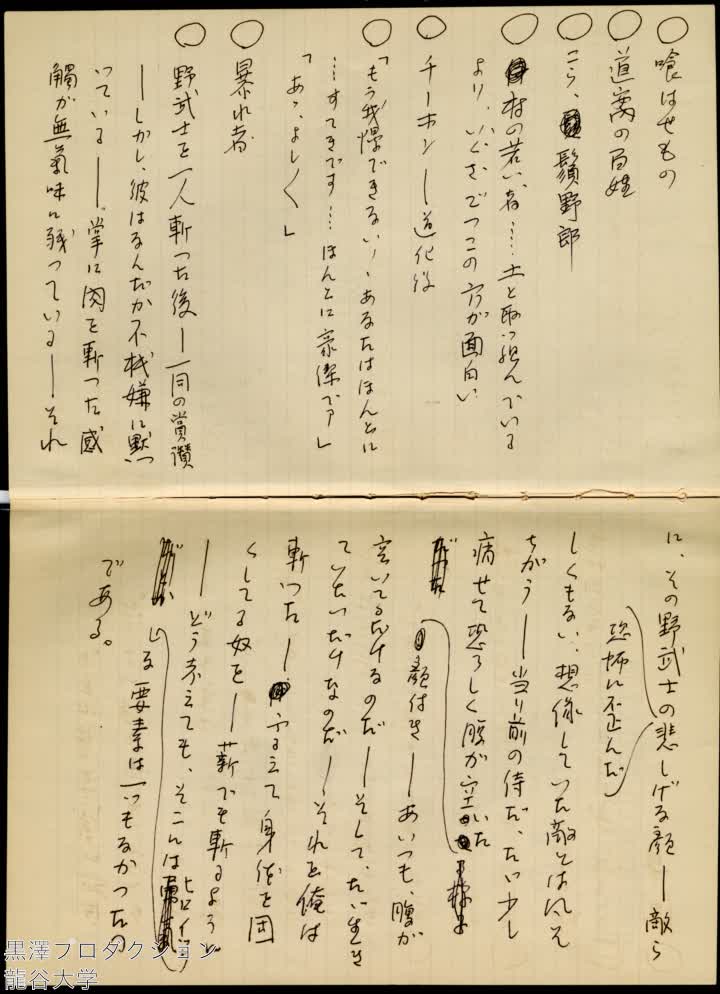 喰はせもの
道案の百姓
こら、鬚野郎
村の若い者……土と取っ組んでいる
より、いくさごっこの方が面白い
チーホン――道化役
「もう我慢できない、あなたはほんとに
…すてきです……ほんとに豪傑でア」
「あゝ、よし〱」
暴れ者
野武士を一人斬った後――一同の賞讃
――しかし、彼はなんだか不機嫌に黙
っている――掌に肉を斬った感
触が無氣味に残っている――それ
に、その野武士の悲しげな顔――敵ら
恐怖に歪んだ
しくもない、想像していた敵とは凡そ
ちがう――当り前の侍だ、たゞ少し
痩せて恐ろしく腹が空いた
顔付き――あいつも、腹が
空いてるだけなのだ――そして、たゞ生き
ていたいだけなのだ――それを俺は
斬った――ふるえて身体を固
くしてる奴を――薪でも斬るように
――どう考えても、そこには
ヒロイッ
な要素は一つもなかったの
である。
黒澤プロダクション
龍谷大学